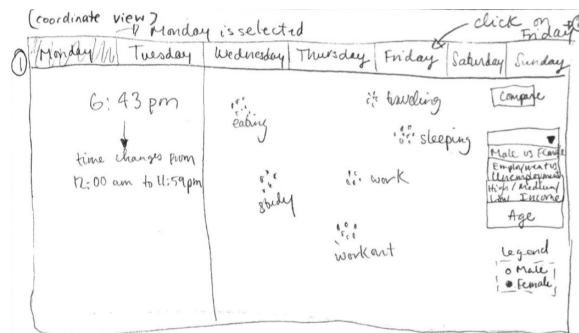 (coordinate view)
Monday is selected
click on
Friday
①
Monday Tuesday Wednesday Thursday Friday Saturday Sunday
6:43 pm
time changes from
12:00 am to 11:59pm
eating
traveling
sleeping
study
work
workout
Compare
Male vs Female
Employment vs
Unemployment
High/Medium/
Low Income
Age
Legend
Male
Female